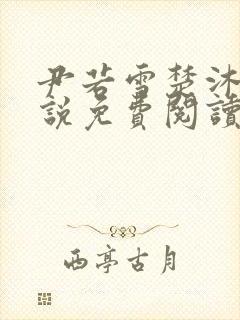 尹若雪楚沐
說免費閱讀
西亭古月